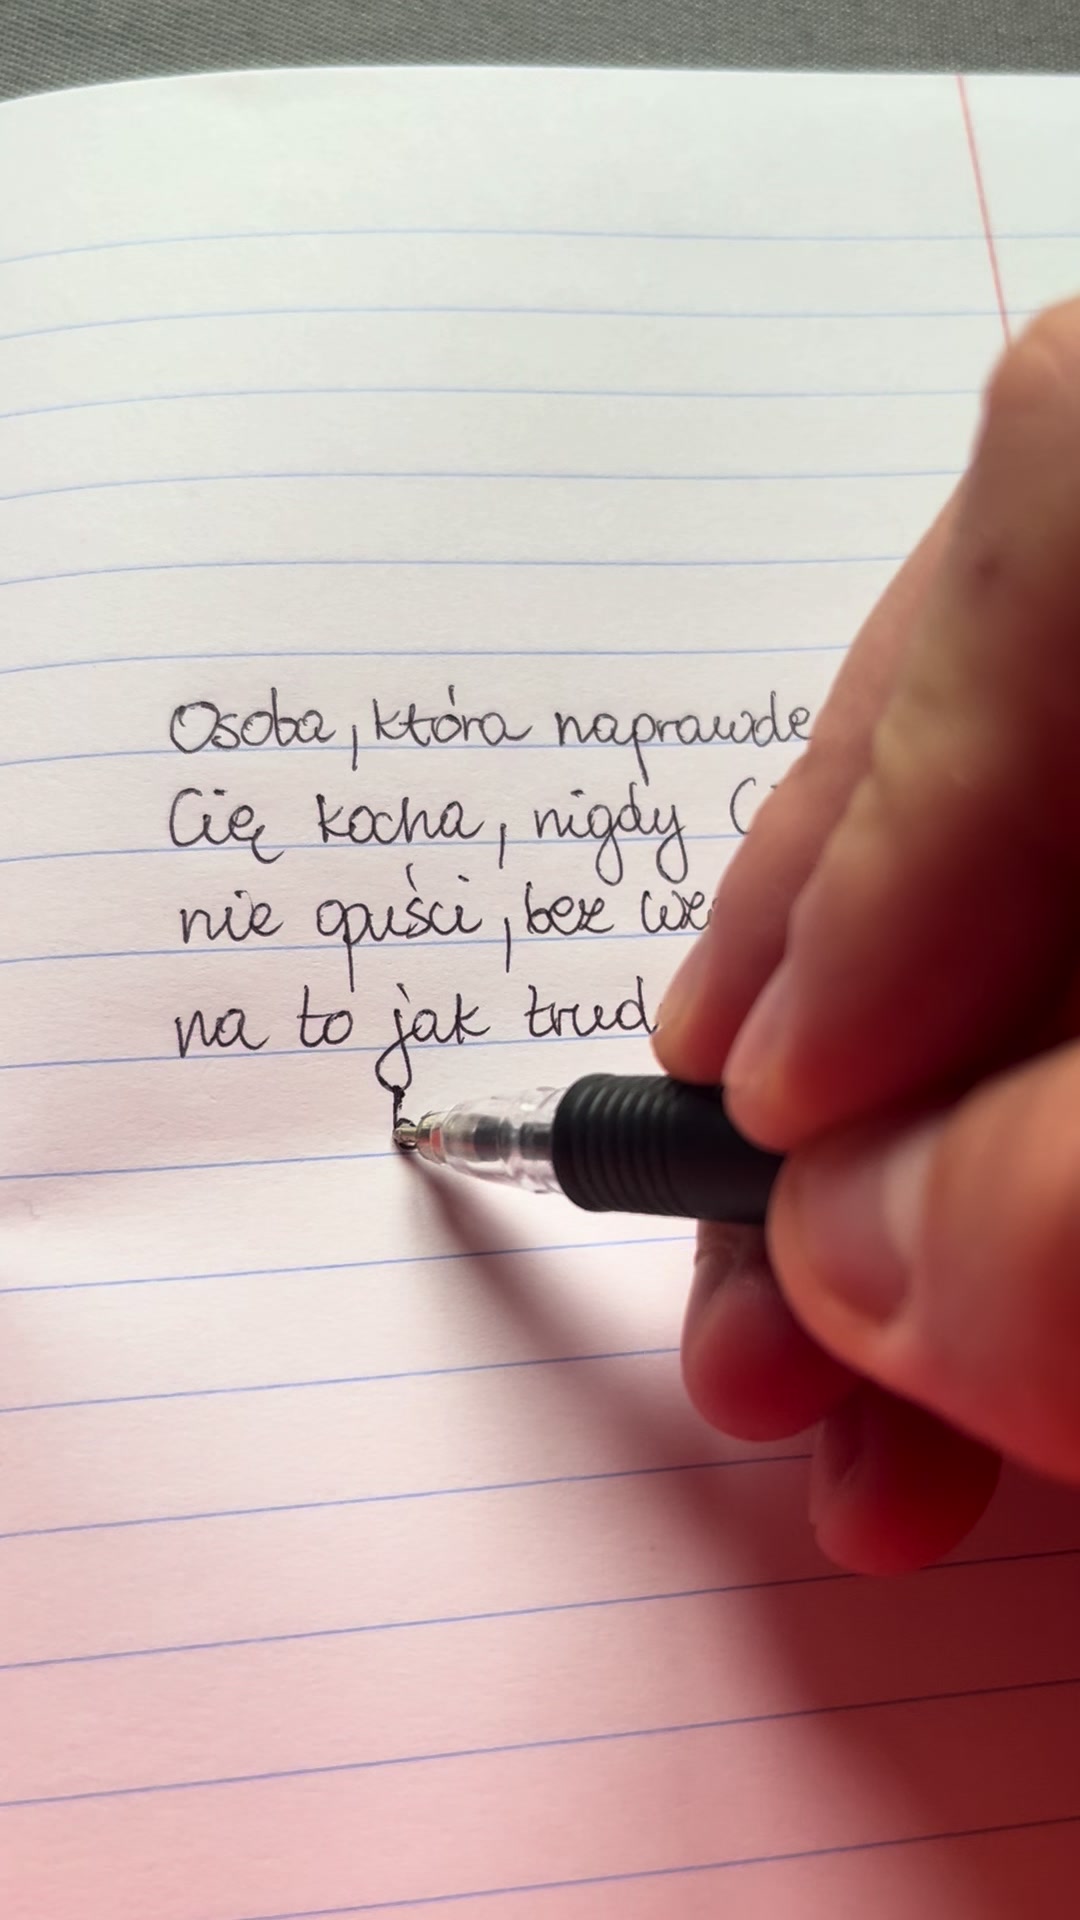 Osoba, która naprawdę
Cię kocha, nigdy
nie opuści, bez
na to jak